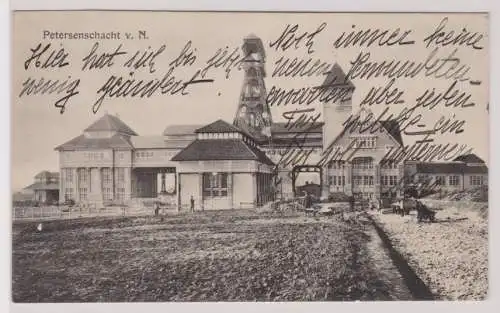 Petersenschacht v. N.
Hier hat sich bis jetzt
wenig geändert
Noch immer keine
neuen Kommandeten
erwarten aber jeden
Tag welche ein